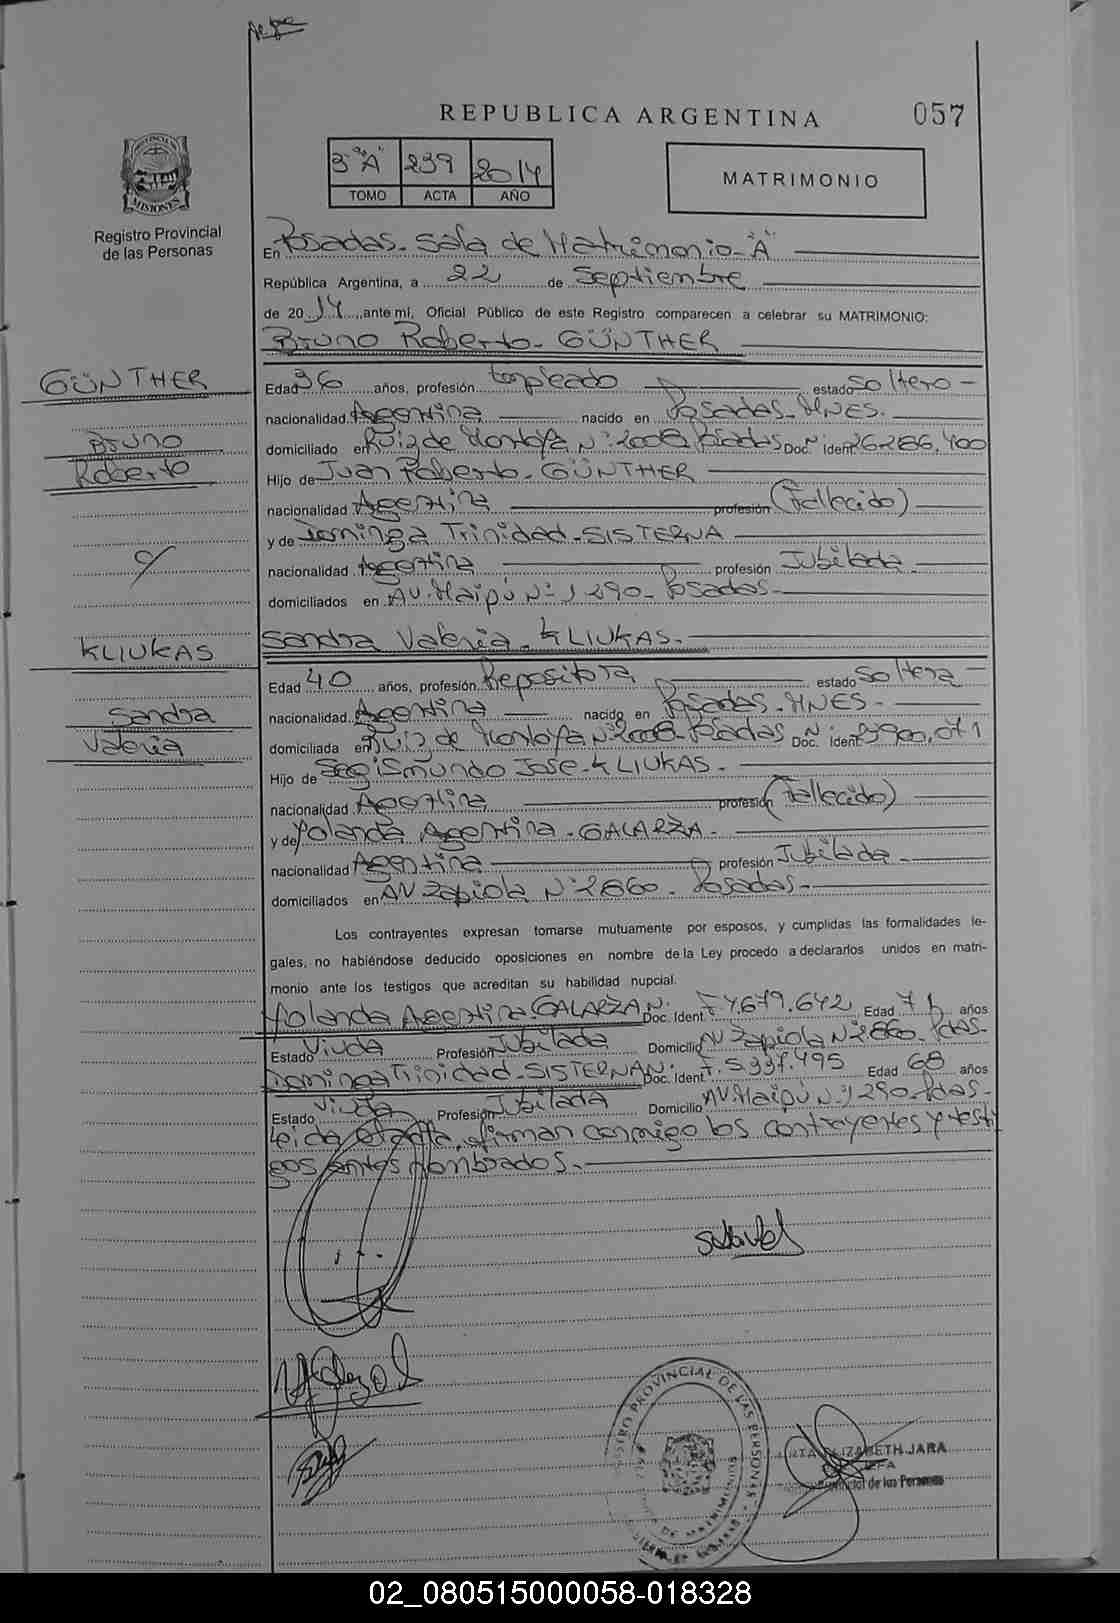 REPUBLICA ARGENTINA 057
PROVINCIA DE
MISIONES
Registro Provincial
de las Personas
3º "A" 239 2014
TOMO ACTA AÑO
MATRIMONIO
En Posadas - Sala de Matrimonio - "A"
República Argentina, a 22 de Septiembre
de 2014, ante mí, Oficial Público de este Registro comparecen a celebrar su MATRIMONIO:
Bruno Roberto - GÜNTHER
GÜNTHER
Bruno
Roberto
Edad 36 años, profesión Empleado estado soltero -
nacionalidad Argentina nacido en Posadas - MNES.
domiciliado en Ruiz de Montoya Nº 2008 Posadas Doc. Ident. Nº 26.266.400
Hijo de Juan Roberto - GÜNTHER
nacionalidad Argentina profesión (Fallecido)
y de Dominga Trinidad - SISTERNA
nacionalidad Argentina profesión Jubilada
domiciliados en AV. Maipú Nº 1290 - Posadas -
c/
KLIUKAS
Sandra
Valeria
Sandra Valeria - KLIUKAS -
Edad 40 años, profesión Repositora estado soltera -
nacionalidad Argentina nacido en Posadas - MNES -
domiciliada en Ruiz de Montoya Nº 2008 - Posadas Doc. Ident. Nº
Hijo de Segismundo Jose - KLIUKAS -
nacionalidad Argentina profesión (Fallecido)
y de Yolanda Argentina - GALARZA -
nacionalidad Argentina profesión Jubilada -
domiciliados en AV Zapiola Nº 2860 - Posadas -
Los contrayentes expresan tomarse mutuamente por esposos, y cumplidas las formalidades le-
gales, no habiéndose deducido oposiciones en nombre de la Ley procedo a declararlos unidos en matri-
monio ante los testigos que acreditan su habilidad nupcial.
Yolanda Argentina - GALARZA Nº Doc. Ident. F 4.679.642 Edad 71 años
Estado Viuda Profesión Jubilada Domicilio AV Zapiola Nº 2860 - Pdas -
Dominga Trinidad - SISTERNA Nº Doc. Ident. F. 5.337.495 Edad 68 años
Estado Viuda Profesión Jubilada Domicilio AV. Maipú Nº 1290 - Pdas -
Leída el acta, firman conmigo los contrayentes y testi
gos antes nombrados. -
REGISTRO PROVINCIAL DE LAS PERSONAS
DE MATRIMONIOS
ELIZABETH JARA
JEFA
Provincial de las Personas
02_080515000058-018328